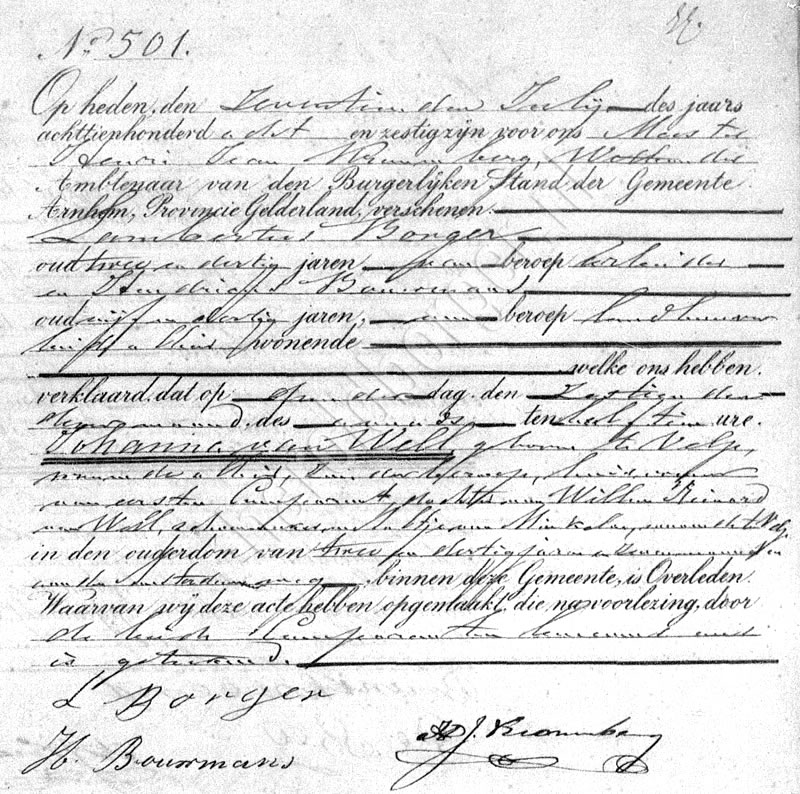 No 501.
Op heden, den Zeventienden Julij des jaars
achttienhonderd acht en zestig zijn voor ons Meester
Henri Jean Kronenberg, Wethouder
Ambtenaar van den Burgerlijken Stand der Gemeente
Arnhem, Provincie Gelderland, verschenen
Lambertus Borger
oud twee en dertig jaren, van beroep
en Bouwmans
oud vijf en dertig jaren, van beroep
beide alhier wonende
welke ons hebben
verklaard, dat op den dag, den Zestienden
dezer maand, des avonds ten half tien ure.
Johanna van Well geboren te Velp,
wonende alhier, zonder beroep, huisvrouw
van eersten Comparant, dochter van Willem Reinard
van Well, en van wonende te Velp
in den ouderdom van twee en dertig jaren en zeven maanden
aan den Amsterdamsche weg, binnen deze Gemeente, is Overleden.
Waarvan wij deze acte hebben opgemaakt, die, na voorlezing, door
de beide Comparanten benevens ons
is geteekend.
L Borger
H. Bouwmans
H J. Kronenberg